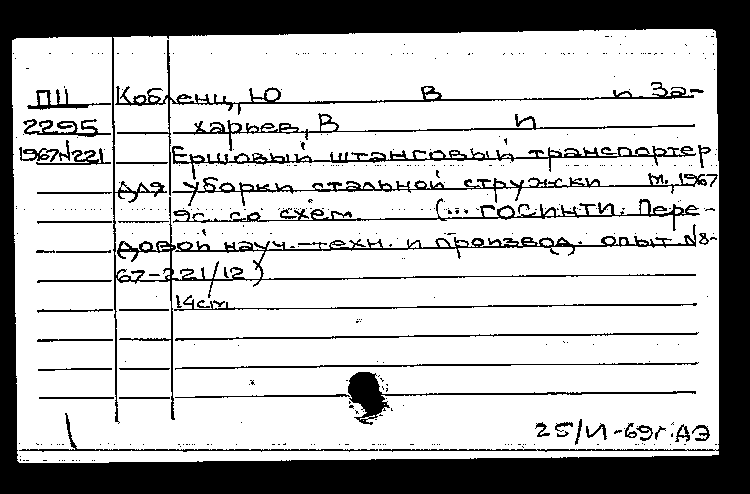 ПII Кобленц, Ю В и За-
2295 харьев, В И
1967№221 Ершовый штанговый транспортер
для уборки стальной стружки М., 1967
9с. со схем. (... ГОСИНТИ. Пере-
довой науч.-техн. и производ. опыт №8-
67-221/12)
14cm
25/VI-69г. АЭ